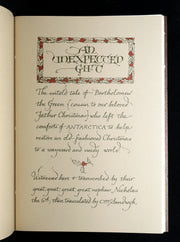 AN
UNEXPECTED
GIFT
The untold tale of Bartholomew
the Green (cousin to our beloved
Father Christmas) who left the
comforts of ANTARCTICA to help
restore an old-fashioned Christmas
to a wayward and needy world.
Witnessed here & transcribed by their
great, great, great, great nephew, Nicholas
the 5th, then translated by